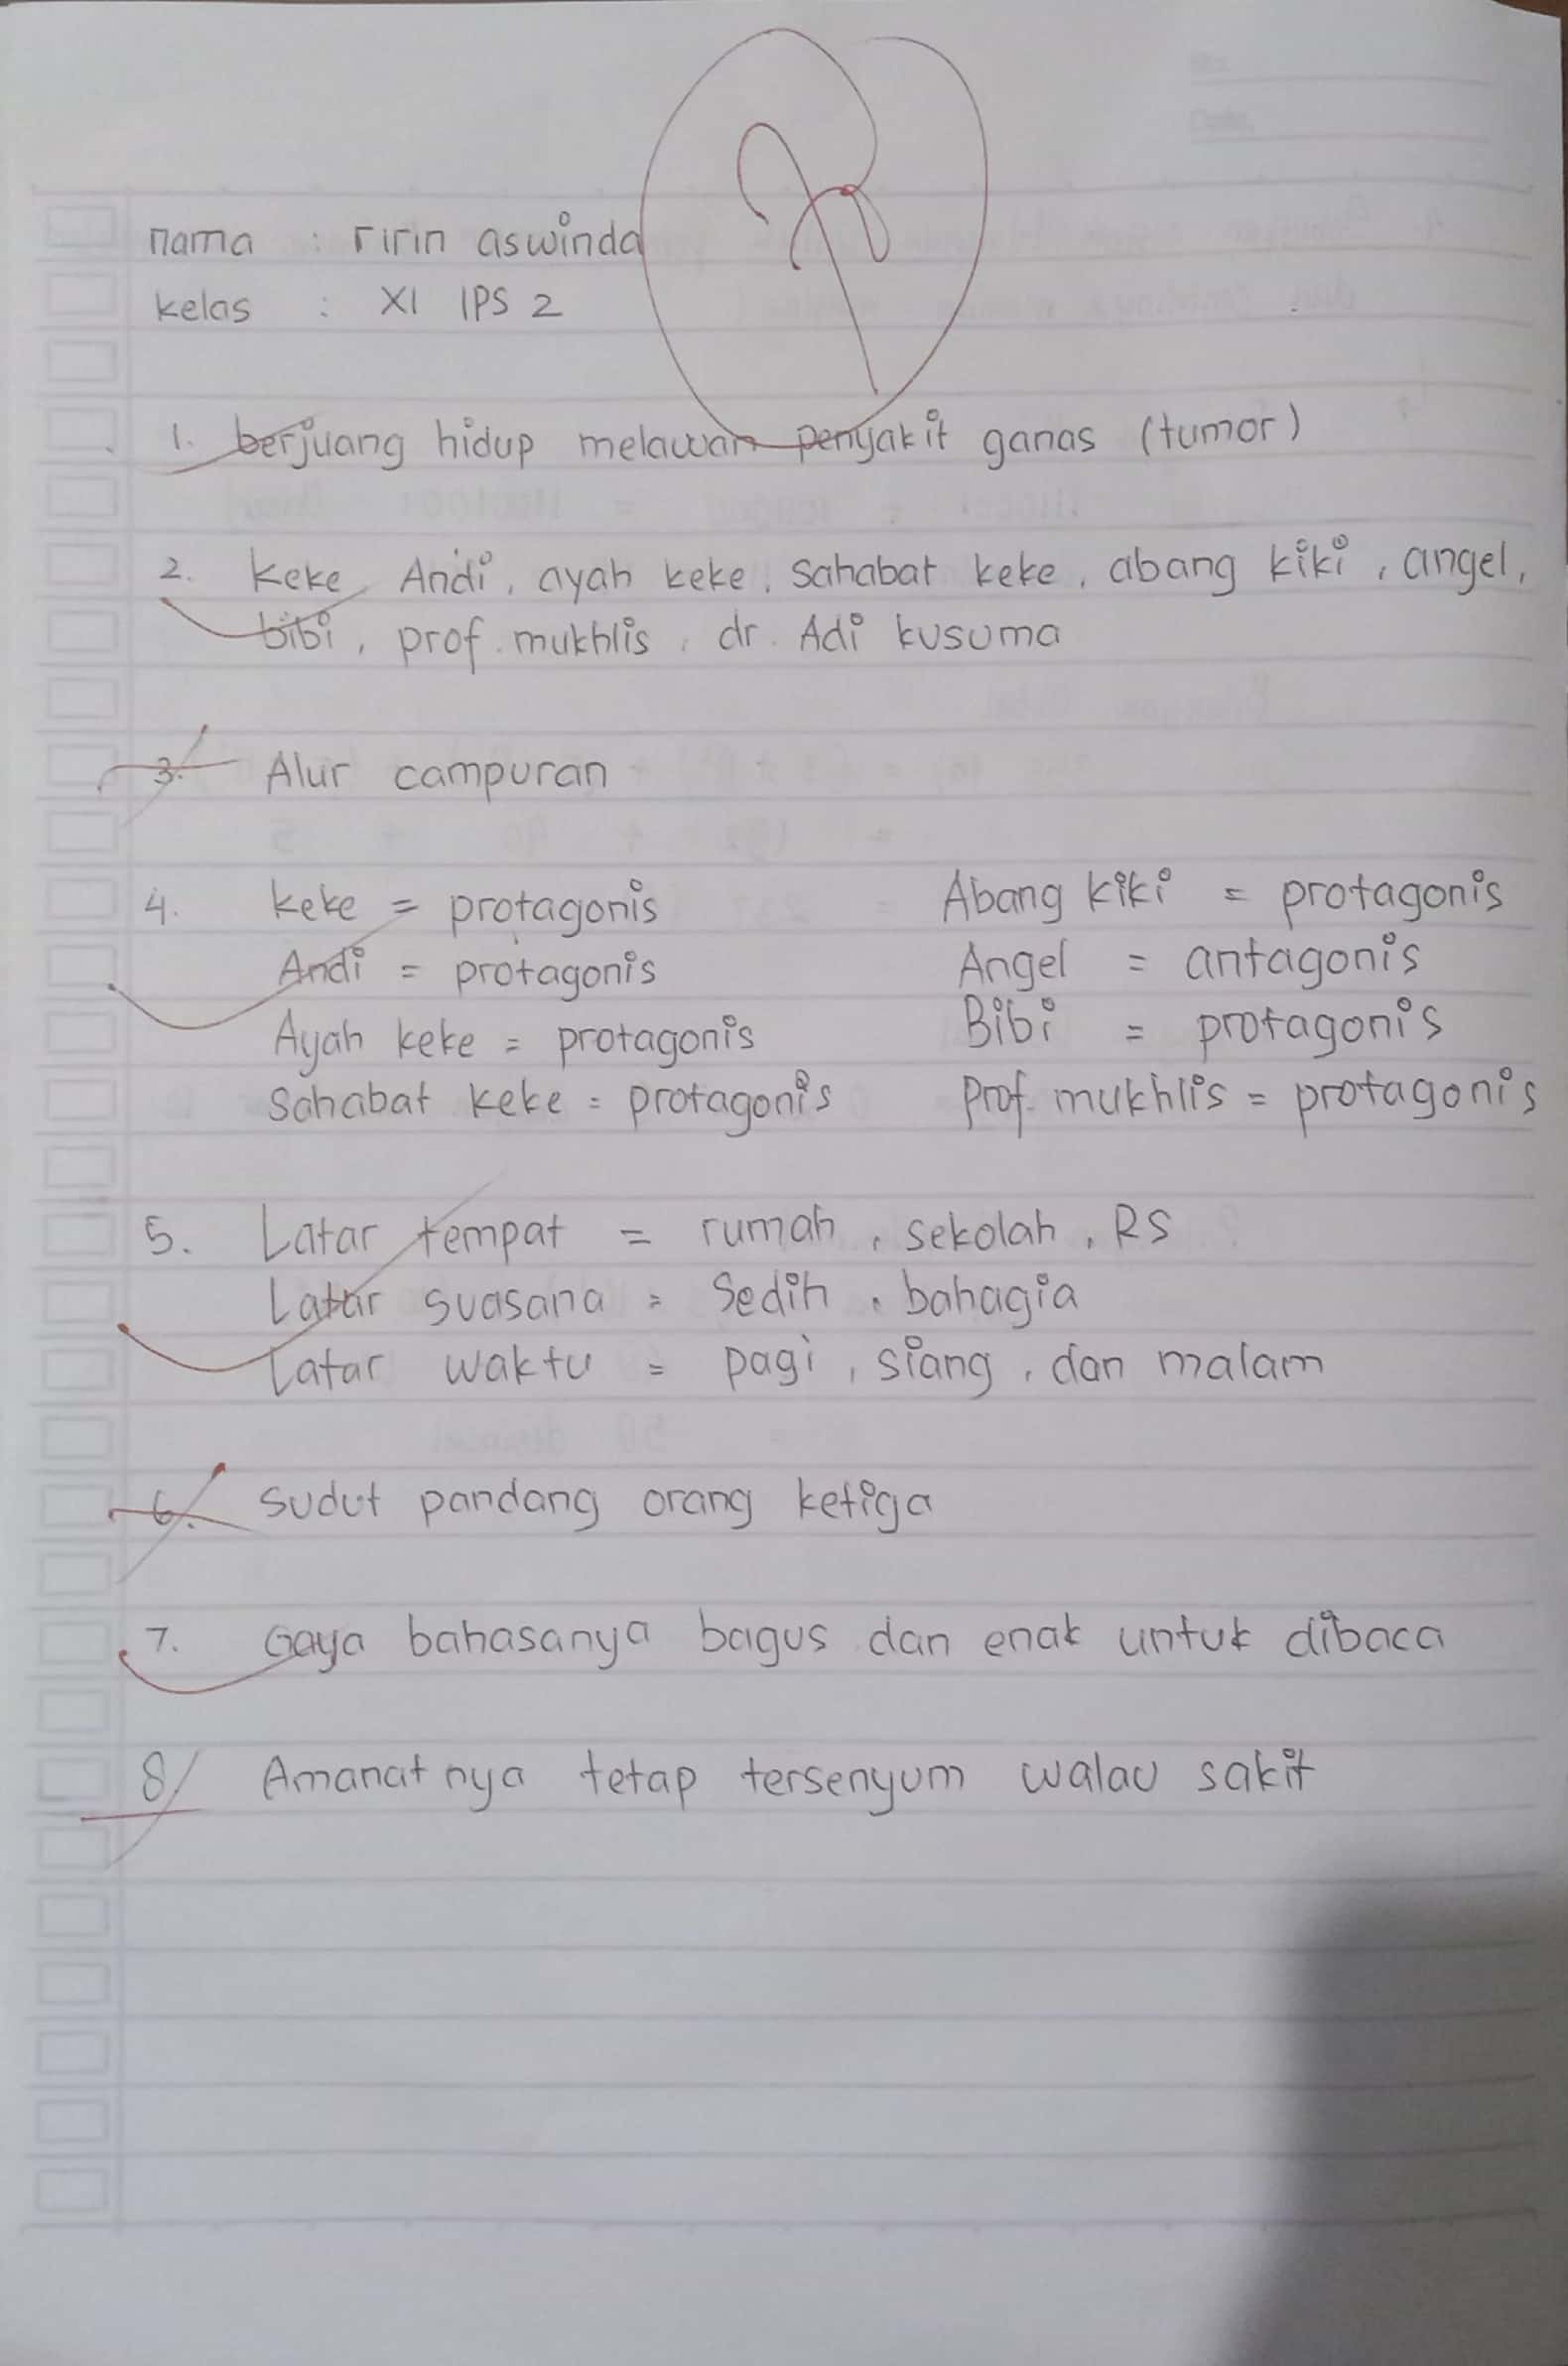 nama : ririn aswinda
kelas : XI IPS 2
1. berjuang hidup melawan penyakit ganas (tumor)
2. keke, Andi, ayah keke, sahabat keke, abang kiki, angel,
bibi, prof. mukhlis, dr. Adi kusuma
3. Alur campuran
4. keke = protagonis Abang kiki = protagonis
Andi = protagonis Angel = antagonis
Ayah keke = protagonis Bibi = protagonis
Sahabat keke = protagonis Prof. mukhlis = protagonis
5. Latar tempat = rumah, sekolah, RS
Latar suasana = Sedih, bahagia
Latar waktu = pagi, siang, dan malam
6. sudut pandang orang ketiga
7. Gaya bahasanya bagus dan enak untuk dibaca
8 Amanatnya tetap tersenyum walau sakit